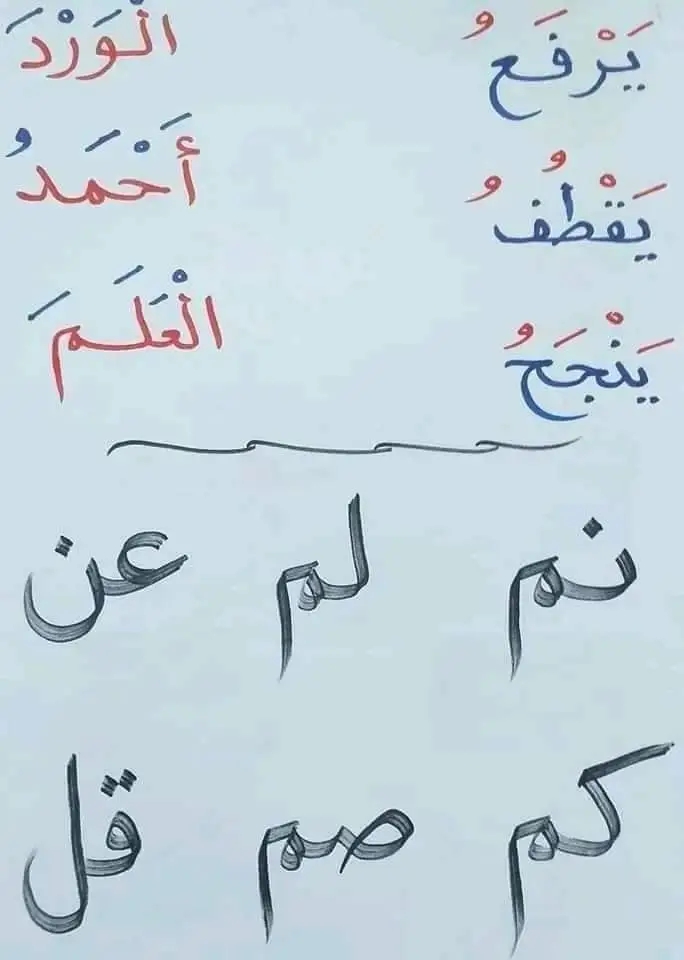 يَرْفَعُ الْوَرْدَ
يَقْطُفُ أَحْمَدُ
يَنْجَحُ الْعَلَمَ
نم لم عن
كم صم قل